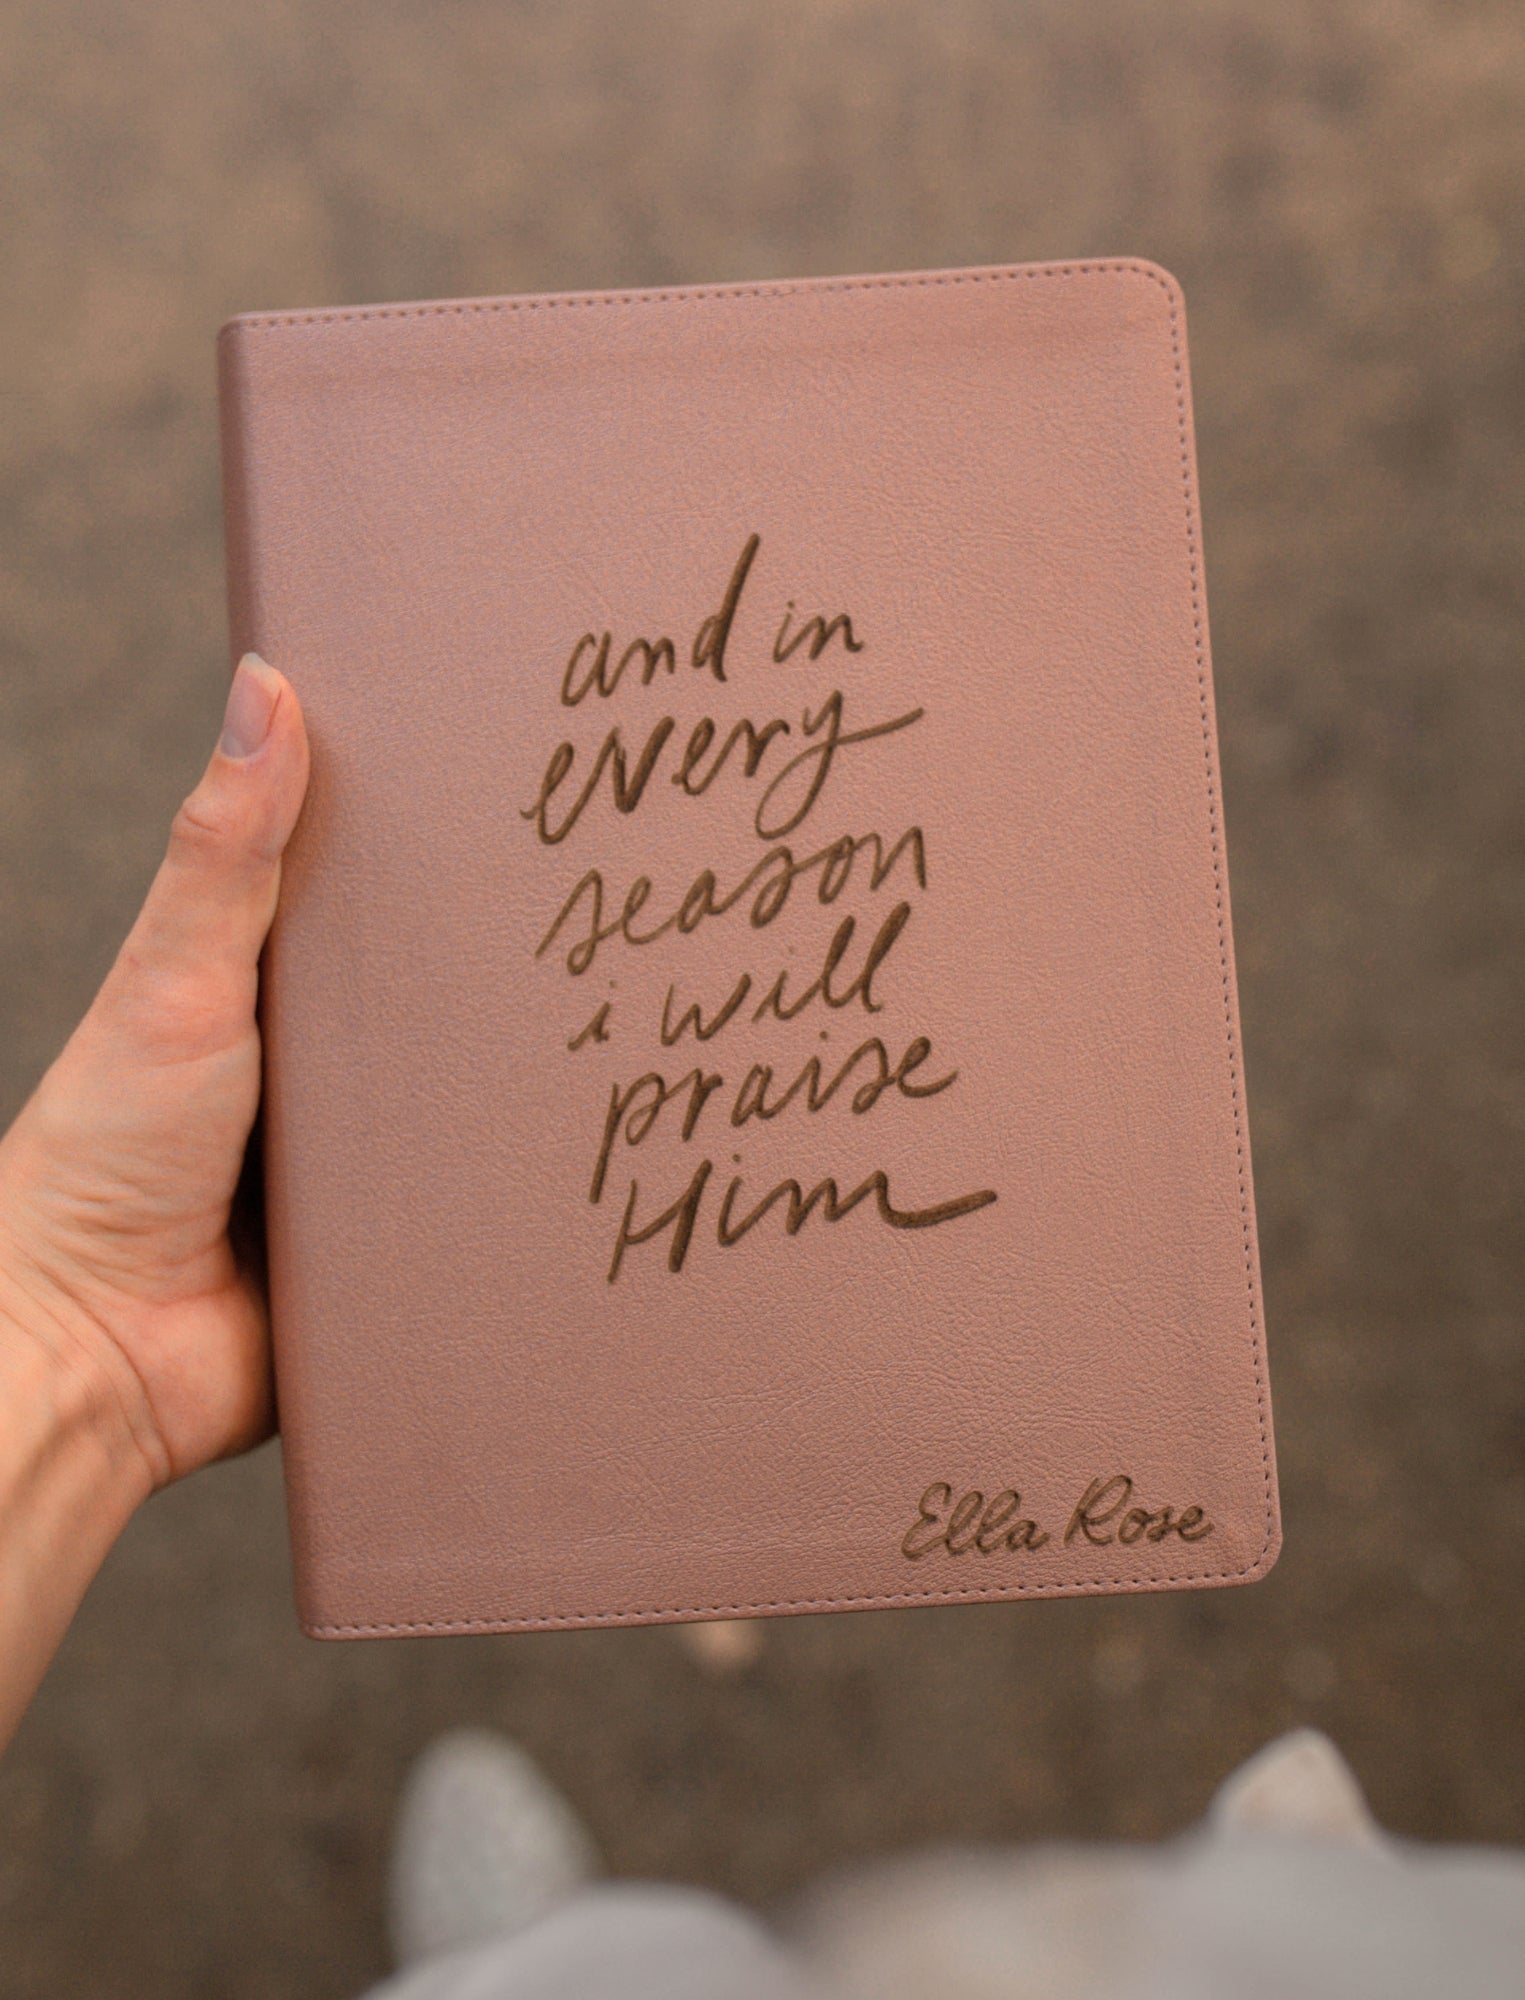 and in
every
season
i will
praise
Him
Ella Rose